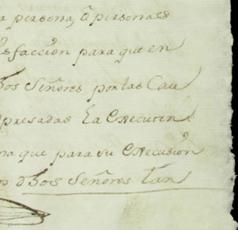 a persona, o personas
isfaccion para que en
dhos Señores por las Cau
presadas la Execucin
na que para su Execusion
n dhos Señores tan